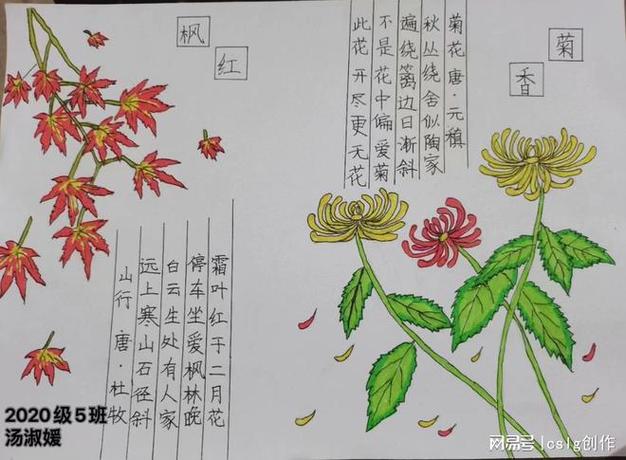 枫红
菊香
菊花 唐·元稹
秋丛绕舍似陶家
遍绕篱边日渐斜
不是花中偏爱菊
此花开尽更无花
山行 唐·杜牧
远上寒山石径斜
白云生处有人家
停车坐爱枫林晚
霜叶红于二月花
2020级5班
汤淑媛
网易号|cslg创作